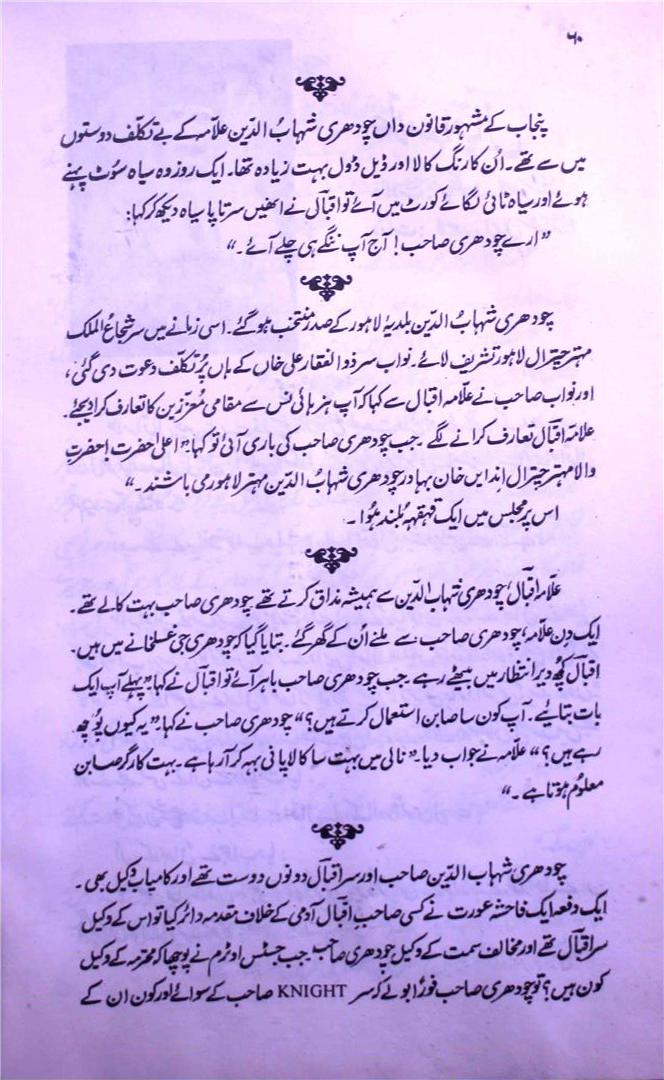 ۶۰
پنجاب کے مشہور قانون داں چودھری شہابُ الدّین علامہ کے بے تکلّف دوستوں
میں سے تھے۔ اُن کا رنگ کالا اور ڈیل ڈول بہت زیادہ تھا۔ ایک روز وہ سیاہ سُوٹ پہنے
ہوئے اور سیاہ ٹائی لگائے کورٹ میں آئے تو اقبالؔ نے انھیں سرتاپا سیاہ دیکھ کر کہا:
”ارے چودھری صاحب! آج آپ ننگے ہی چلے آئے۔“
چودھری شہابُ الدّین بلدیۂ لاہور کے صدر منتخب ہو گئے۔ اسی زمانے میں سر شجاعُ الملک
مہتر چترال لاہور تشریف لائے۔ نواب سر ذوالفقار علی خاں کے ہاں پُرتکلّف دعوت دی گئی،
اور نواب صاحب نے علّامہ اقبال سے کہا کہ آپ ہز ہائی نس سے مقامی مُعزّزین کا تعارف کرا دیجئے۔
علامہ اقبالؔ تعارف کرانے لگے۔ جب چودھری صاحب کی باری آئی تو کہا ”اعلیٰ حضرت! حضرتِ
والا مہتر چترال اند ایں خان بہادر چودھری شہابُ الدّین مہتر لاہور می باشند۔“
اس پر مجلس میں ایک قہقہہ بُلند ہُوا۔
علامہ اقبالؔ، چودھری شہابُ الدّین سے ہمیشہ مذاق کرتے تھے چودھری صاحب بہت کالے تھے۔
ایک دِن علامہ، چودھری صاحب سے ملنے اُن کے گھر گئے۔ بتایا گیا کہ چودھری جی غسلخانے میں ہیں۔
اقبالؔ کچھ دیر انتظار میں بیٹھے رہے۔ جب چودھری صاحب باہر آئے تو اقبالؔ نے کہا ”پہلے آپ ایک
بات بتایئے۔ آپ کون سا صابن استعمال کرتے ہیں؟“ چودھری صاحب نے کہا ”یہ کیوں پُوچھ
رہے ہیں؟“ علامہ نے جواب دیا۔ ”نالی میں بہت سا کالا پانی بہہ کر آرہا ہے۔ بہت کارگر صابن
معلوُم ہوتا ہے۔“
چودھری شہاب الدّین صاحب اور سر اقبالؔ دونوں دوست تھے اور کامیاب وکیل بھی۔
ایک دفعہ ایک فاحشہ عورت نے کسی صاحبِ اقبالؔ آدمی کے خلاف مقدمہ دائر کیا تو اس کے وکیل
سر اقبالؔ تھے اور مخالف سمت کے وکیل چودھری صاحب۔ جب جسٹس اوٹرم نے پوچھا کہ محترمہ کے وکیل
کون ہیں؟ تو چودھری صاحب فوراً بولے کہ سر KNIGHT صاحب کے سوائے اور کون ان کے